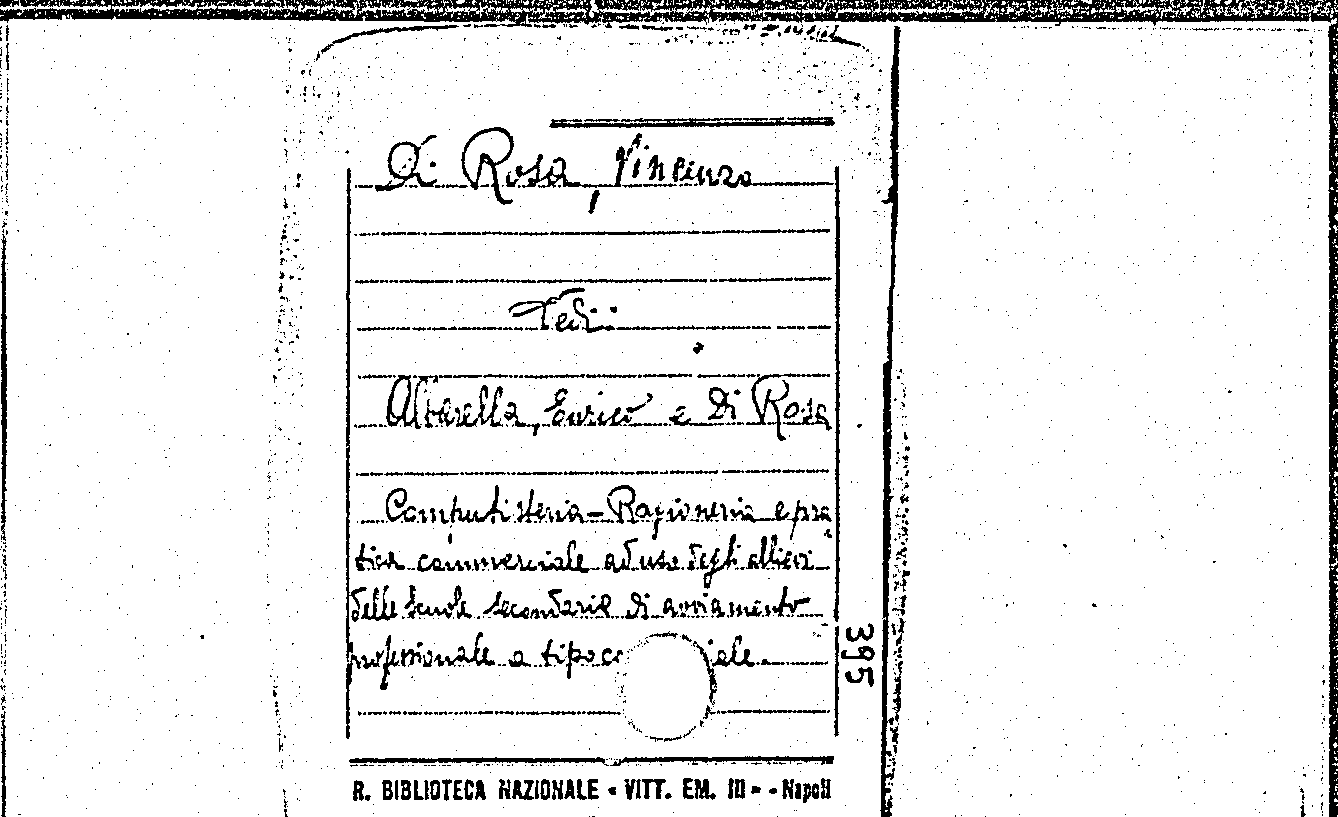 Di Rosa, Vincenzo
Vedi:
Albarella, Enrico e Di Rosa
Computisteria - Ragioneria e pra
tica commerciale ad uso degli allievi
delle Scuole secondarie di avviamento
professionale a tipo co iale.
395
R. BIBLIOTECA NAZIONALE « VITT. EM. III » - Napoli